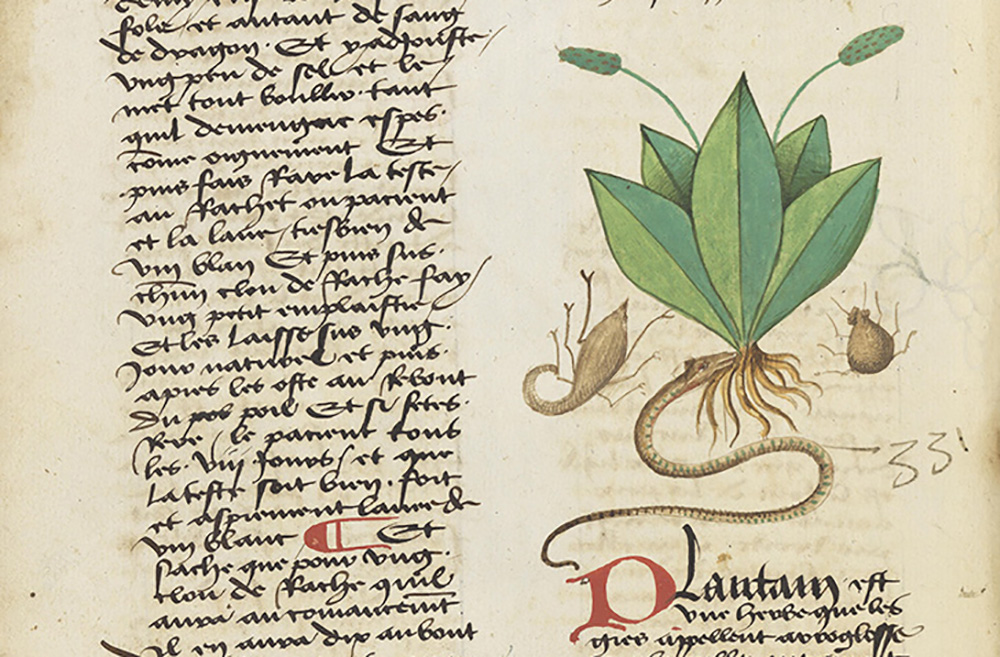 sole et autant de sang
de dragon. Et y adjouste
ung peu de sel et le
met tout boullir tant
quil espes.
côme oignement Et
puis fais Rave la teste
au Rachet ou pacient
et la lave tresbien de
vin blan Et puis sus
chûn clou de Rache fay
ung petit emplaistre
Et les laisse sus ung
Jour naturel et puis
apres les oste au Rebout
du pos poil Et si setes
Reve le pacient tous
les viij Jours et que
la teste soit bien fort
et asprement lavee de
vin blanc Et
sache que pour ung
clou de Rache quil
aura au comancemt
Il en aura dix au bout
33
Plantain est
une herbe que les
gres appellent arnoglosse